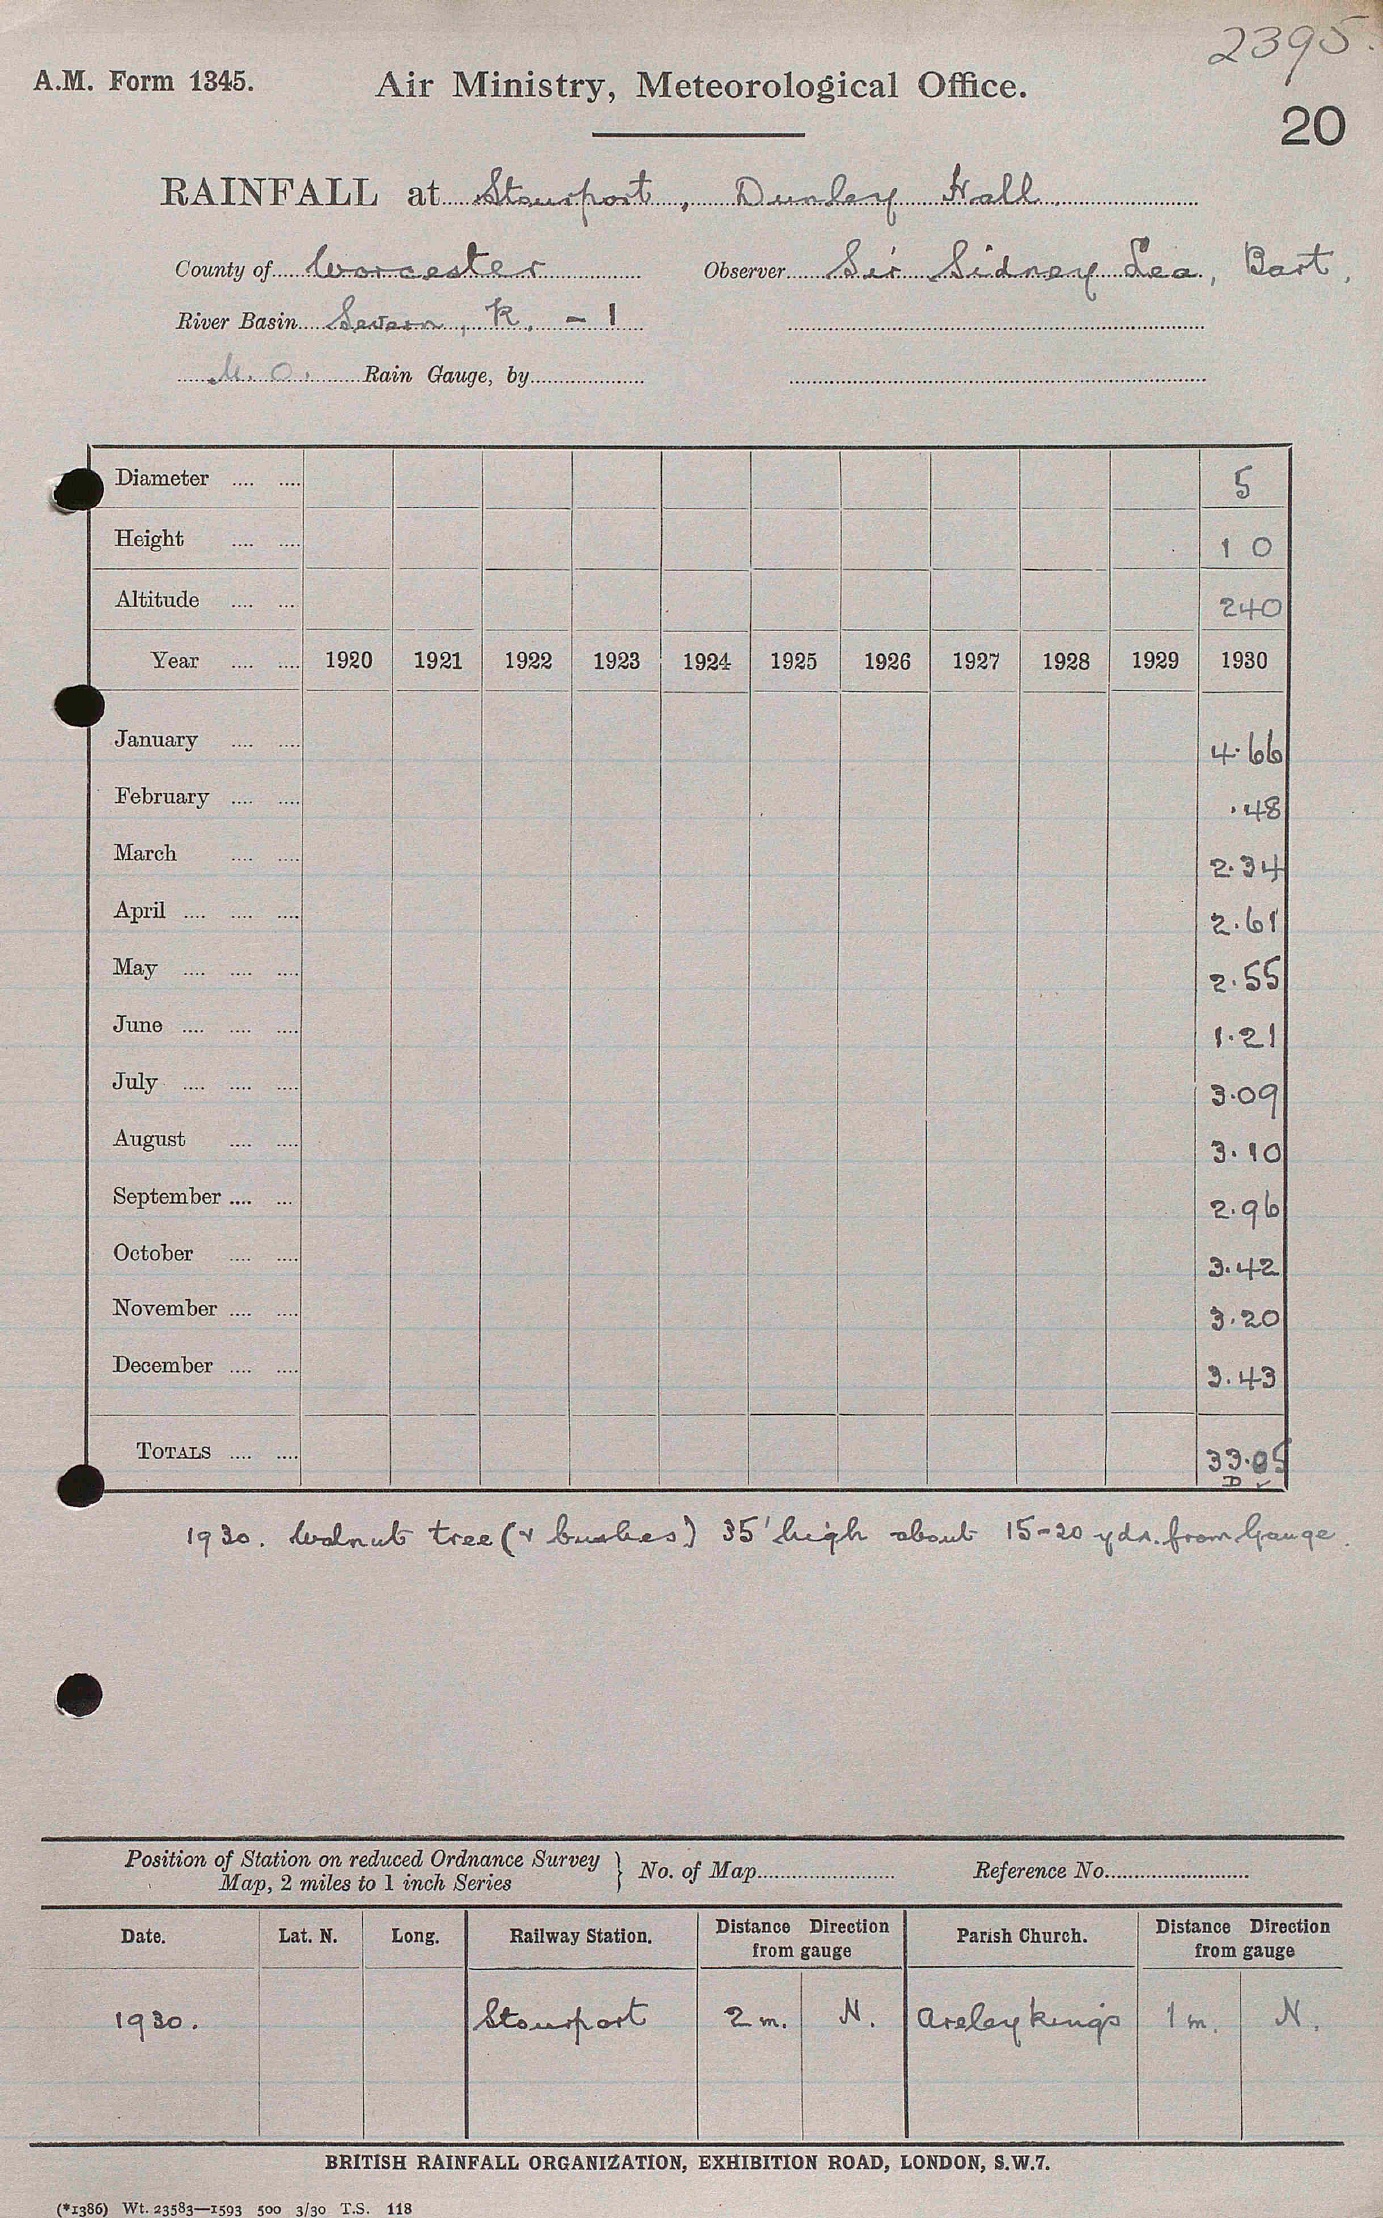 2395.
A.M. Form 1345. Air Ministry, Meteorological Office.
20
RAINFALL at Stourport, Dunley Hall.
County of Worcester Observer Sir Sidney Lea, Bart,
River Basin Severn, R. - 1
M.O. Rain Gauge, by
Diameter .... .... 5
Height .... .... 1 0
Altitude .... ... 240
Year .... .... 1920 1921 1922 1923 1924 1925 1926 1927 1928 1929 1930
January .... .... 4.66
February .... .... .48
March .... .... 2.34
April .... .... .... 2.61
May .... .... .... 2.55
June .... .... .... 1.21
July .... .... .... 3.09
August .... .... 3.10
September .... ... 2.96
October .... .... 3.42
November .... .... 3.20
December .... .... 3.43
TOTALS .... .... 33.05
D ✓
1930. Walnut tree (& bushes) 35' high about 15-20 yds. from Gauge.
Position of Station on reduced Ordnance Survey Map, 2 miles to 1 inch Series } No. of Map Reference No.
Date. Lat. N. Long. Railway Station. Distance Direction from gauge Parish Church. Distance Direction from gauge
1930. Stourport 2 m. N. Areley Kings 1 m. N.
BRITISH RAINFALL ORGANIZATION, EXHIBITION ROAD, LONDON, S.W.7.
(*1386) Wt. 23583—1593 500 3/30 T.S. 118